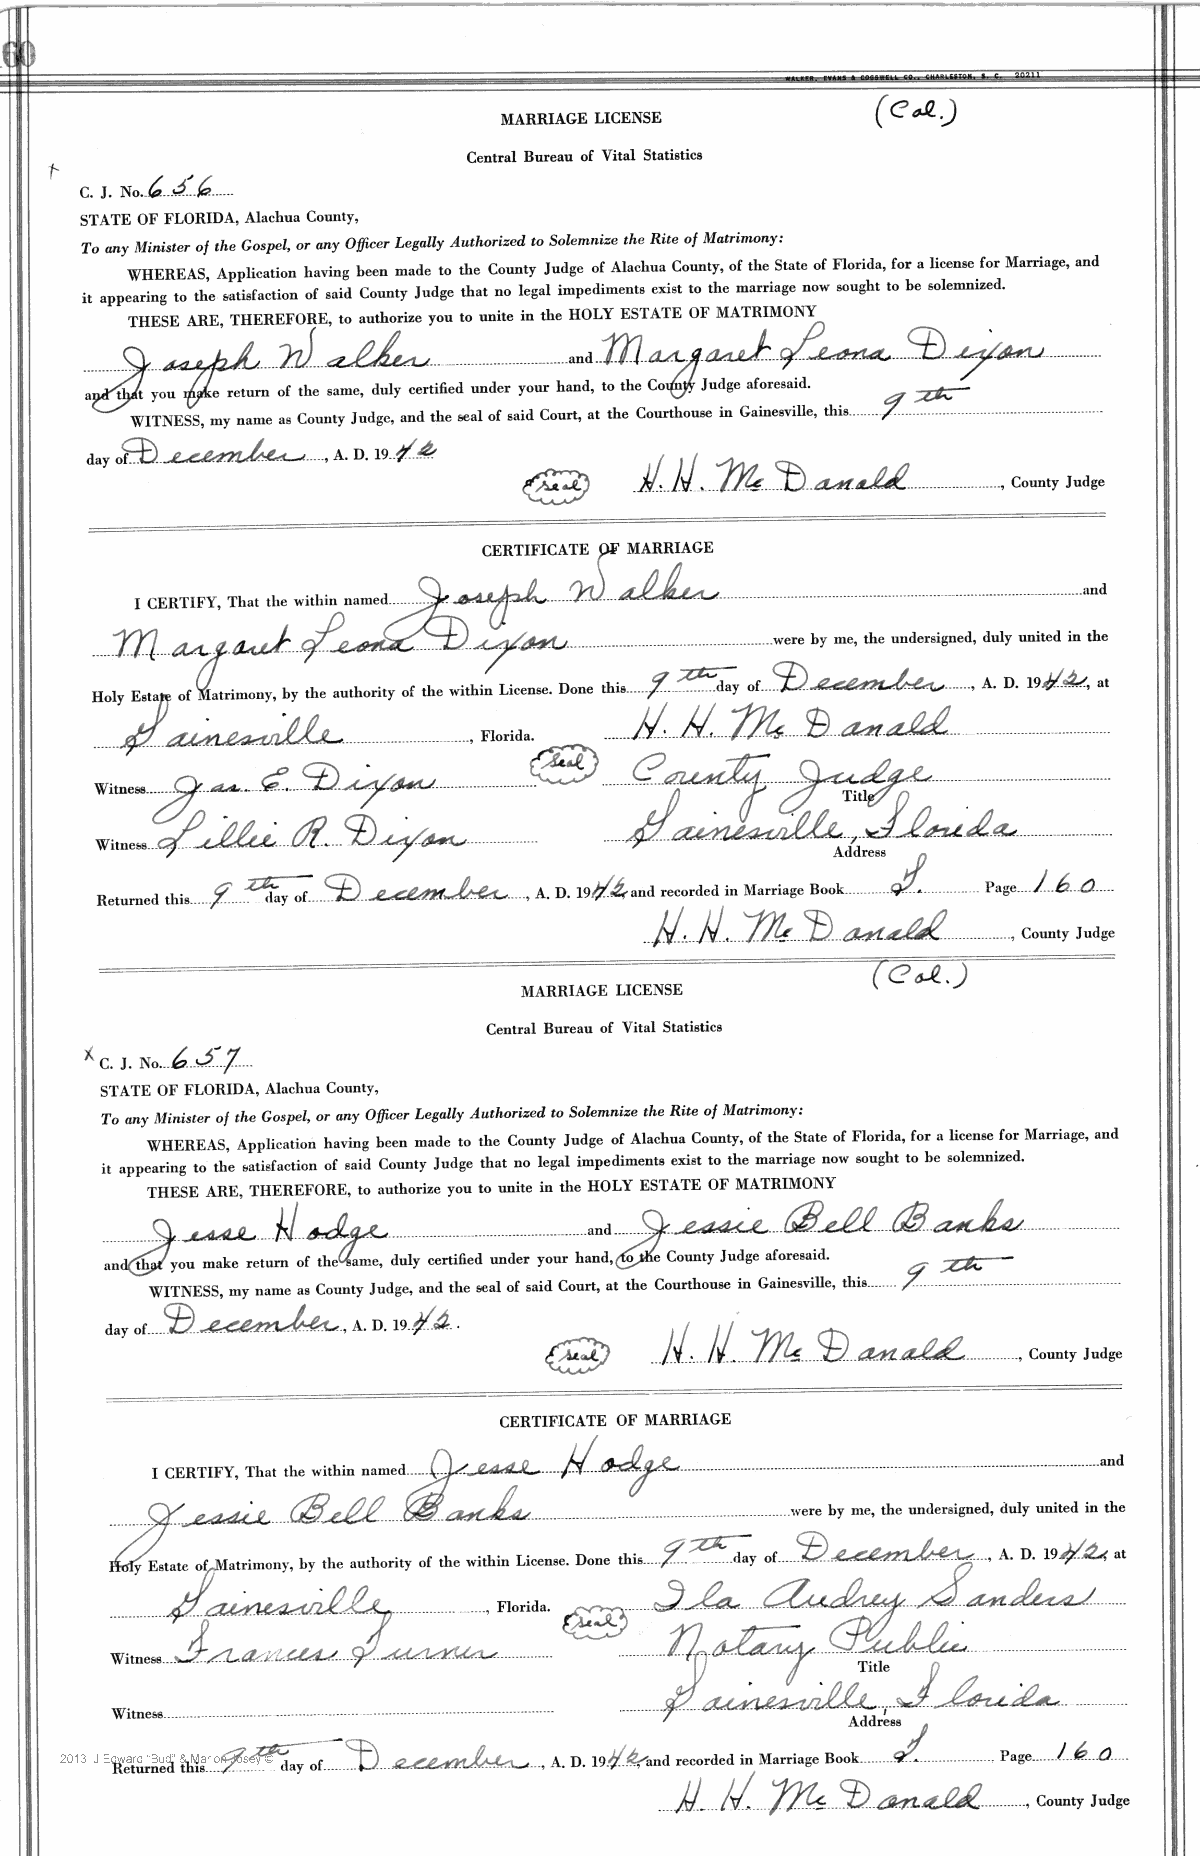 60
WALKER, EVANS & COGSWELL CO., CHARLESTON, S. C. 20211
MARRIAGE LICENSE (Col.)
Central Bureau of Vital Statistics
x
C. J. No. 656
STATE OF FLORIDA, Alachua County,
To any Minister of the Gospel, or any Officer Legally Authorized to Solemnize the Rite of Matrimony:
WHEREAS, Application having been made to the County Judge of Alachua County, of the State of Florida, for a license for Marriage, and
it appearing to the satisfaction of said County Judge that no legal impediments exist to the marriage now sought to be solemnized.
THESE ARE, THEREFORE, to authorize you to unite in the HOLY ESTATE OF MATRIMONY
Joseph Walker and Margaret Leona Dixon
and that you make return of the same, duly certified under your hand, to the County Judge aforesaid.
WITNESS, my name as County Judge, and the seal of said Court, at the Courthouse in Gainesville, this 9th
day of December, A. D. 1942
Seal H. H. McDanald, County Judge
CERTIFICATE OF MARRIAGE
I CERTIFY, That the within named Joseph Walker and
Margaret Leona Dixon were by me, the undersigned, duly united in the
Holy Estate of Matrimony, by the authority of the within License. Done this 9th day of December, A. D. 1942, at
Gainesville, Florida. H. H. McDanald
Witness Jas. E. Dixon Seal County Judge
Title
Witness Lillie R. Dixon Gainesville, Florida
Address
Returned this 9th day of December, A. D. 1942, and recorded in Marriage Book Page 160
H. H. McDanald, County Judge
(Col.)
MARRIAGE LICENSE
Central Bureau of Vital Statistics
x C. J. No. 657
STATE OF FLORIDA, Alachua County,
To any Minister of the Gospel, or any Officer Legally Authorized to Solemnize the Rite of Matrimony:
WHEREAS, Application having been made to the County Judge of Alachua County, of the State of Florida, for a license for Marriage, and
it appearing to the satisfaction of said County Judge that no legal impediments exist to the marriage now sought to be solemnized.
THESE ARE, THEREFORE, to authorize you to unite in the HOLY ESTATE OF MATRIMONY
Jesse Hodge and Jessie Bell Banks
and that you make return of the same, duly certified under your hand, to the County Judge aforesaid.
WITNESS, my name as County Judge, and the seal of said Court, at the Courthouse in Gainesville, this 9th
day of December, A. D. 1942.
Seal H. H. McDanald, County Judge
CERTIFICATE OF MARRIAGE
I CERTIFY, That the within named Jesse Hodge and
Jessie Bell Banks were by me, the undersigned, duly united in the
Holy Estate of Matrimony, by the authority of the within License. Done this 9th day of December, A. D. 1942, at
Gainesville, Florida. Seal Ila Audrey Sanders
Witness Frances Turner Notary Public
Title
Witness Gainesville, Florida
Address
2013 J Edward "Bud" & Marion Josey ©
Returned this 9th day of December, A. D. 1942, and recorded in Marriage Book Page 160
H. H. McDanald, County Judge